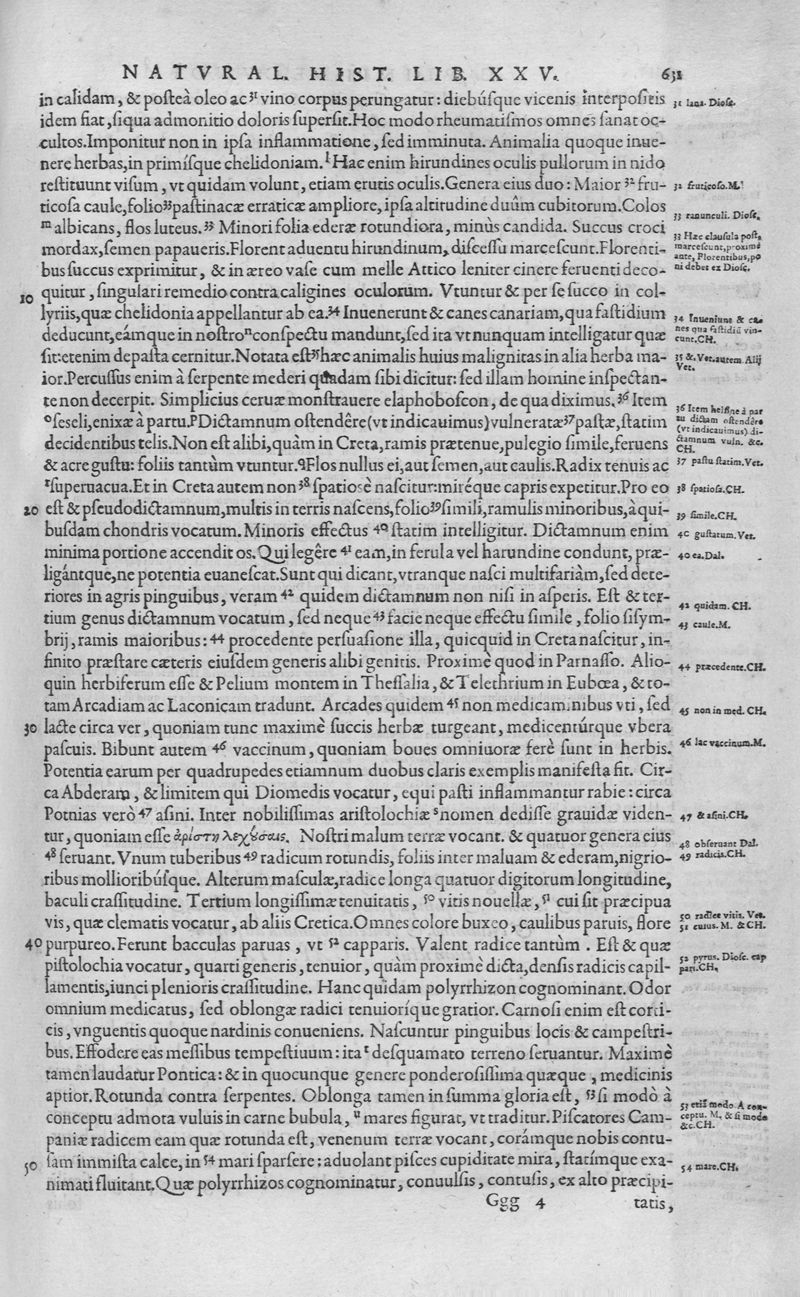 NATVRAL. HIST. LIB. XXV. 631
in calidam, & posteà oleo ac ³¹ vino corpus perungatur: diebúsque vicenis interpositis
31 lana. Diosc.
idem fiat, siqua admonitio doloris supersit. Hoc modo rheumatismos omnes sanat oc-
cultos. Imponitur non in ipsa inflammatione, sed imminuta. Animalia quoque inue-
nere herbas, in primísque chelidoniam. ˡ Hac enim hirundines oculis pullorum in nido
restituunt visum, vt quidam volunt, etiam erutis oculis. Genera eius duo: Maior ³² fru-
32 fruticoso. M.
ticosa caule, folio ³³ pastinacæ erraticæ ampliore, ipsa altitudine duûm cubitorum. Colos
33 ranunculi. Diosc.
ᵐ albicans, flos luteus. ³³ Minori folia ederæ rotundiora, minùs candida. Succus croci
33 Hæc clausula post,
mordax, semen papaueris. Florent aduentu hirundinum, discessu marcescunt. Florenti-
marcescunt, proximè
ante, Florentibus, po
bus succus exprimitur, & in æreo vase cum melle Attico leniter cinere feruenti deco-
ni debet ex Diosc.
10 quitur, singulari remedio contra caligines oculorum. Vtuntur & per se succo in col-
lyriis, quæ chelidonia appellantur ab ea. ³⁴ Inuenerunt & canes canariam, qua fastidium
34 Inueniunt & ca-
deducunt, eámque in nostro ⁿ conspectu mandunt, sed ita vt nunquam intelligatur quæ
nes qua fastidiũ vin-
cunt. CH.
sit: etenim depasta cernitur. Notata est ³⁵ hæc animalis huius malignitas in alia herba ma-
35 &. Vet. autem Alij
Vet.
ior. Percussus enim à serpente mederi quadam sibi dicitur: sed illam homine inspectan-
te non decerpit. Simplicius ceruæ monstrauere elaphoboscon, de qua diximus. ³⁶ Item
36 Item helsine à par
ᵒ seseli, enixæ à partu. ᵖ Dictamnum ostendêre (vt indicauimus) vulneratæ ³⁷ pastæ, statim
tu dictam ostendêre
(vt indicauimus) di-
decidentibus telis. Non est alibi, quàm in Creta, ramis prætenue, pulegio simile, feruens
ctamnum vuln. &c.
CH.
& acre gustu: foliis tantùm vtuntur. ᑫ Flos nullus ei, aut semen, aut caulis. Radix tenuis ac
37 pastu statim. Vet.
ʳ superuacua. Et in Creta autem non ³⁸ spatiosè nascitur: miréque capris expetitur. Pro eo
38 spatiosa. CH.
20 est & pseudodictamnum, multis in terris nascens, folio ³⁹ simili, ramulis minoribus, à qui-
39 simile. CH.
busdam chondris vocatum. Minoris effectus ⁴⁰ statim intelligitur. Dictamnum enim
40 gustatum. Vet.
minima portione accendit os. Qui legêre ⁴¹ eam, in ferula vel harundine condunt, præ-
40 ea. Dal.
ligántque, ne potentia euanescat. Sunt qui dicant, vtranque nasci multifariàm, sed dete-
riores in agris pinguibus, veram ⁴² quidem dictamnum non nisi in asperis. Est & ter-
42 quidam. CH.
tium genus dictamnum vocatum, sed neque ⁴³ facie neque effectu simile, folio sisym-
43 caule. M.
brij, ramis maioribus: ⁴⁴ procedente persuasione illa, quicquid in Creta nascitur, in-
finito præstare cæteris eiusdem generis alibi genitis. Proximè quod in Parnasso. Alio-
44 præcedente. CH.
quin herbiferum esse & Pelium montem in Thessalia, & Telethrium in Eubœa, & to-
tam Arcadiam ac Laconicam tradunt. Arcades quidem ⁴⁵ non medicaminibus vti, sed
45 non in med. CH.
30 lacte circa ver, quoniam tunc maximè succis herbæ turgeant, medicentúrque vbera
pascuis. Bibunt autem ⁴⁶ vaccinum, quoniam boues omniuoræ ferè sunt in herbis.
46 lac vaccinum. M.
Potentia earum per quadrupedes etiamnum duobus claris exemplis manifesta fit. Cir-
ca Abderam, & limitem qui Diomedis vocatur, equi pasti inflammantur rabie: circa
Potnias verò ⁴⁷ asini. Inter nobilissimas aristolochiæ ˢ nomen dedisse grauidæ viden-
47 & asini. CH.
tur, quoniam esse ἀρίστη λεχούσαις. Nostri malum terræ vocant. & quatuor genera eius
48 obseruant Dal.
⁴⁸ seruant. Vnum tuberibus ⁴⁹ radicum rotundis, foliis inter maluam & ederam, nigrio-
49 radicis. CH.
ribus mollioribúsque. Alterum masculæ, radice longa quatuor digitorum longitudine,
baculi crassitudine. Tertium longissimæ tenuitatis, ⁵⁰ vitis nouellæ, ⁵¹ cui sit præcipua
50 radice vitis. Vet.
vis, quæ clematis vocatur, ab aliis Cretica. Omnes colore buxeo, caulibus paruis, flore
51 cuius. M. & CH.
40 purpureo. Ferunt bacculas paruas, vt ⁵² capparis. Valent radice tantùm. Est & quæ
52 pyrus. Diosc. cap
pistolochia vocatur, quarti generis, tenuior, quàm proximè dicta, densis radicis capil-
pari. CH.
lamentis, iunci plenioris crassitudine. Hanc quidam polyrrhizon cognominant. Odor
omnium medicatus, sed oblongæ radici tenuioríque gratior. Carnosi enim est corti-
cis, vnguentis quoque nardinis conueniens. Nascuntur pinguibus locis & campestri-
bus. Effodere eas messibus tempestiuum: ita ᵗ desquamato terreno seruantur. Maximè
tamen laudatur Pontica: & in quocunque genere ponderosissima quæque, medicinis
aptior. Rotunda contra serpentes. Oblonga tamen in summa gloria est, ⁵³ si modò à
53 etiã modo. A con-
conceptu admota vuluis in carne bubula, ᵘ mares figurat, vt traditur. Piscatores Cam-
ceptu. M. & si modo
&c. CH.
paniæ radicem eam quæ rotunda est, venenum terræ vocant, corámque nobis contu-
50 sam immista calce, in ⁵⁴ mari sparsere: aduolant pisces cupiditate mira, statímque exa-
54 mare. CH.
nimati fluitant. Quæ polyrrhizos cognominatur, conuulsis, contusis, ex alto præcipi-
Ggg 4 tatis,